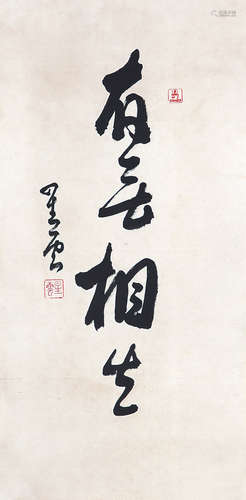 有無相生
星雲